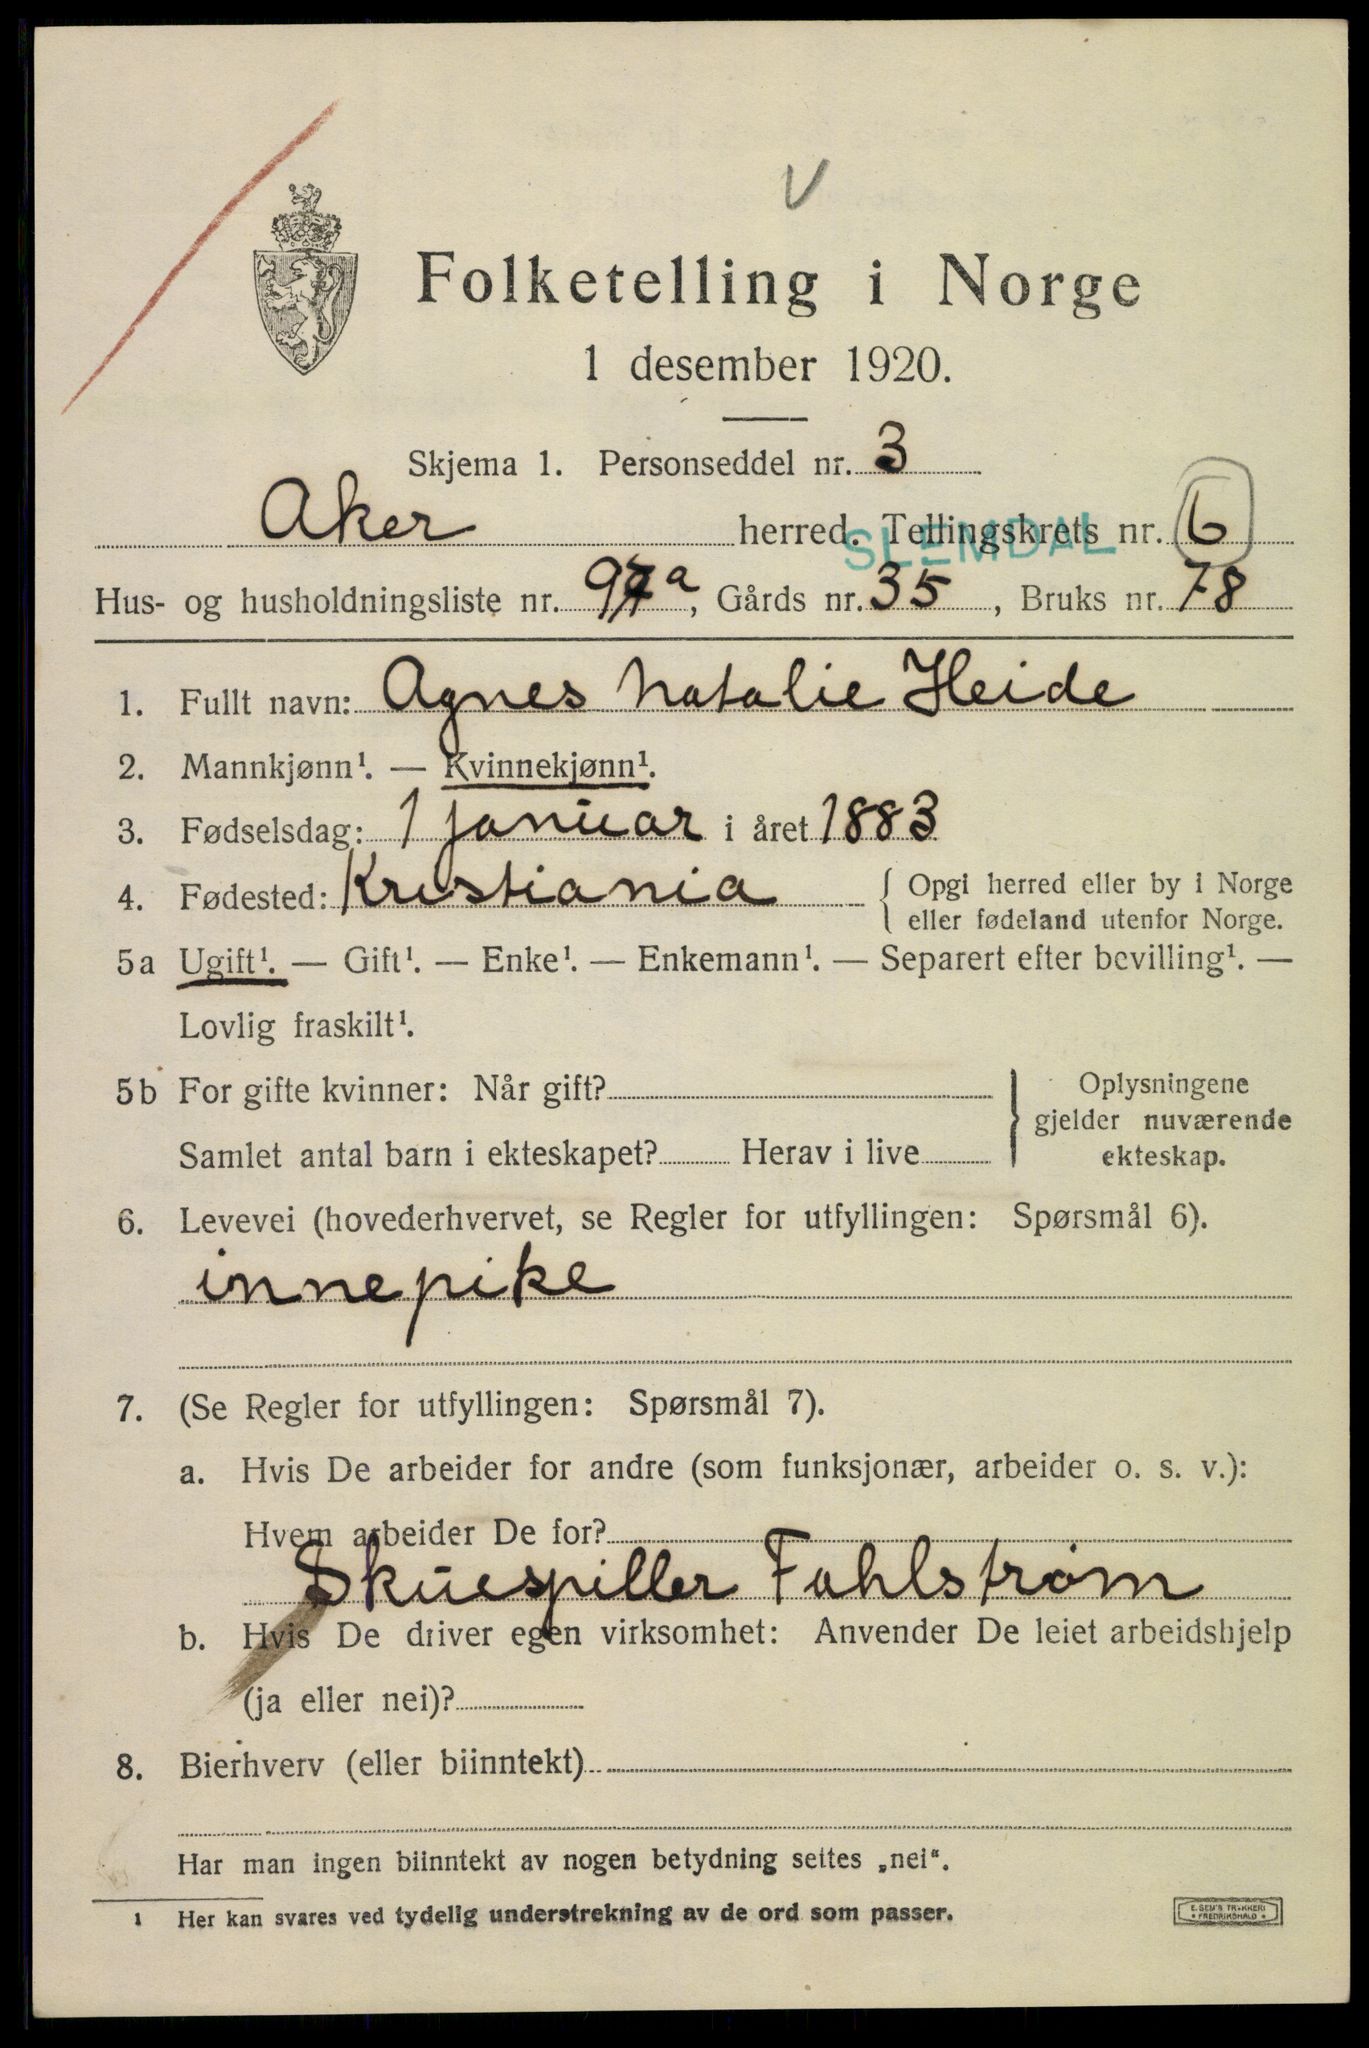 V
Folketelling i Norge
1 desember 1920.
Skjema 1. Personseddel nr. 3
Aker herred. Tellingskrets nr. 6
SLEMDAL
Hus- og husholdningsliste nr. a, Gårds nr. 35, Bruks nr. 78
1. Fullt navn: Agnes Natalie Heide
2. Mannkjønn¹. — Kvinnekjønn¹.
3. Fødselsdag: 1 januar i året 1883
4. Fødested: Kristiania { Opgi herred eller by i Norge
eller fødeland utenfor Norge.
5a Ugift¹. — Gift¹. — Enke¹. — Enkemann¹. — Separert efter bevilling¹. —
Lovlig fraskilt¹.
5b For gifte kvinner: Når gift?
Samlet antal barn i ekteskapet? Herav i live
} Oplysningene
gjelder nuværende
ekteskap.
6. Levevei (hovederhvervet, se Regler for utfyllingen: Spørsmål 6).
innepike
7. (Se Regler for utfyllingen: Spørsmål 7).
a. Hvis De arbeider for andre (som funksjonær, arbeider o. s. v.):
Hvem arbeider De for?
Skuespiller Fahlstrøm
b. Hvis De driver egen virksomhet: Anvender De leiet arbeidshjelp
(ja eller nei)?
8. Bierhverv (eller biinntekt)
Har man ingen biinntekt av nogen betydning settes „nei“.
1 Her kan svares ved tydelig understrekning av de ord som passer.
E. SEM'S TRYKKERI
• FREDRIKSHALD •